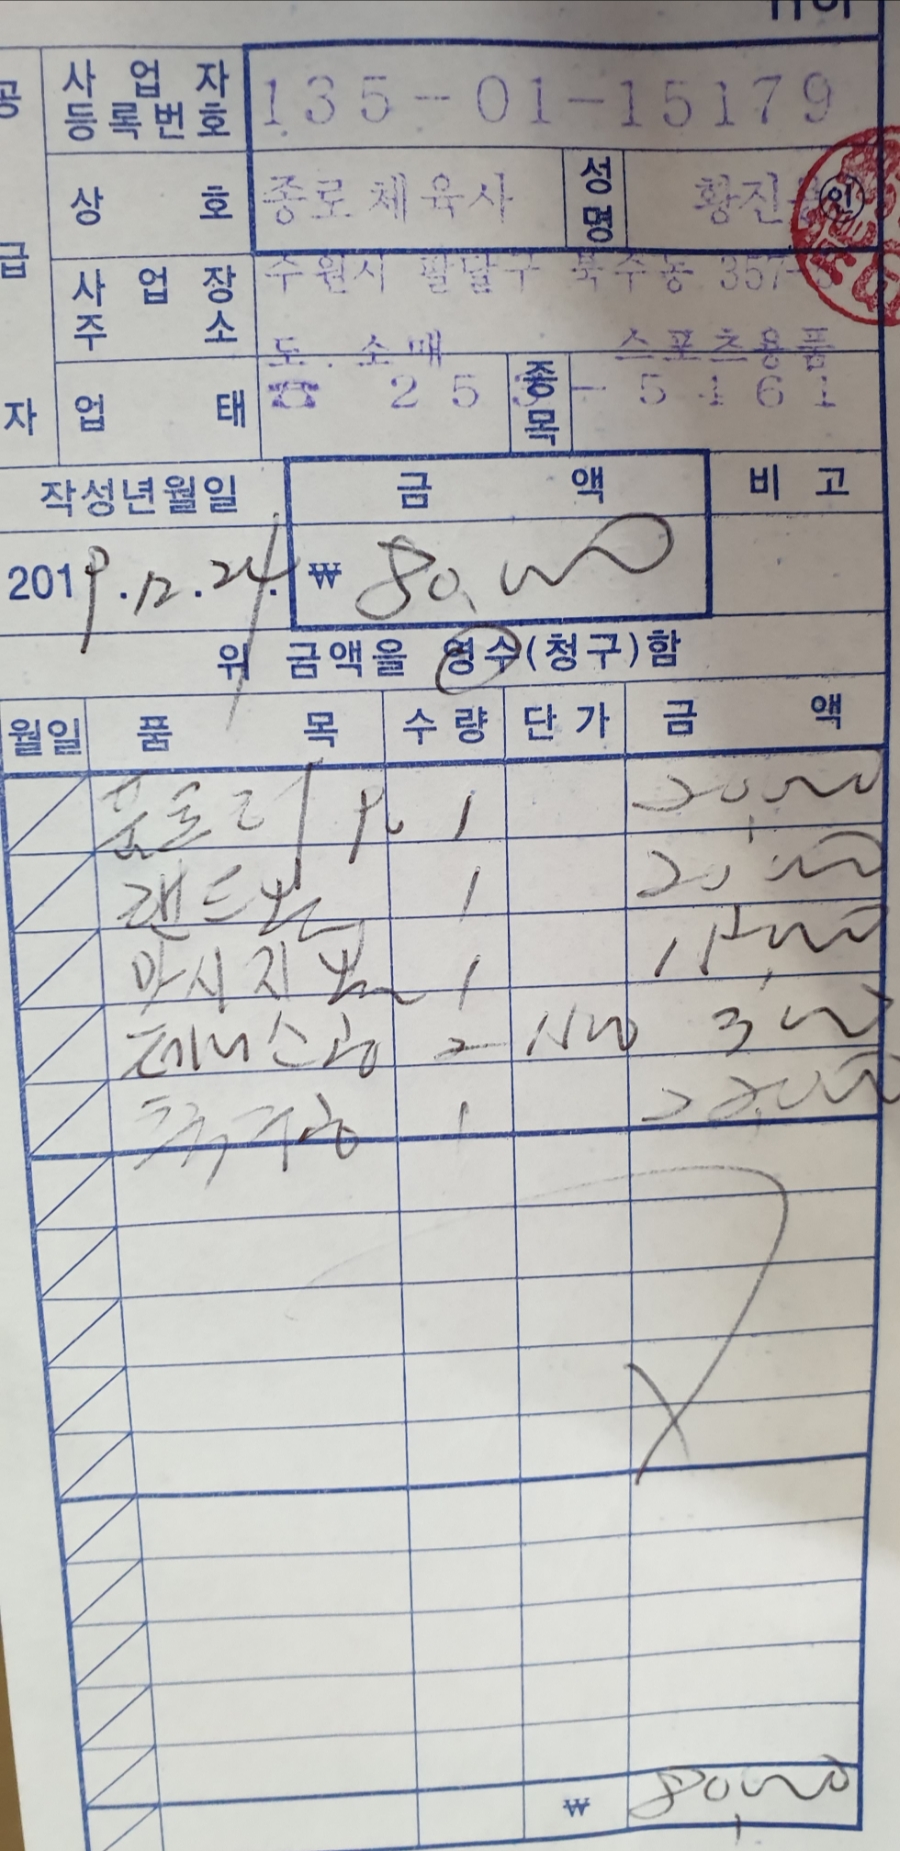 공급자
사업자등록번호 135-01-15179
상호 종로체육사 성명 황진
사업장주소 수원시 팔달구 북수동 357-
도.소매 스포츠용품
업태 ☎ 253-5461 종목
작성년월일 금액 비고
2019.12.24. ₩ 80,000
위 금액을 영수(청구)함
월일 품목 수량 단가 금액
1 20,000
핸드볼 1 20,000
마사지볼 1 15,000
테니스공 2 1500 3,000
1 22,000
₩ 80,000